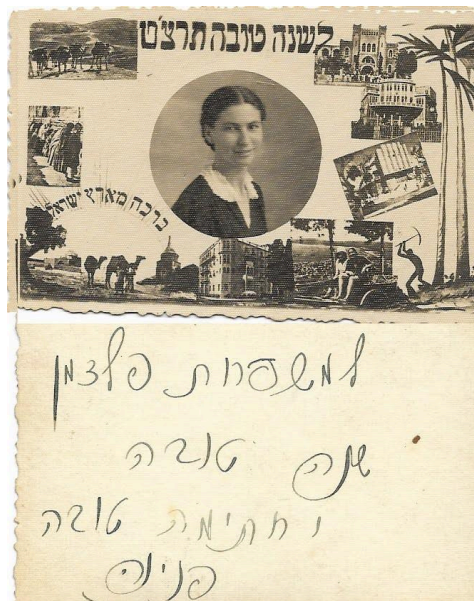 לשנה טובה תרצ"ט
ברכה מארץ ישראל
למשפחת פלצמן
שנה טובה
וחתימה טובה
פנינה